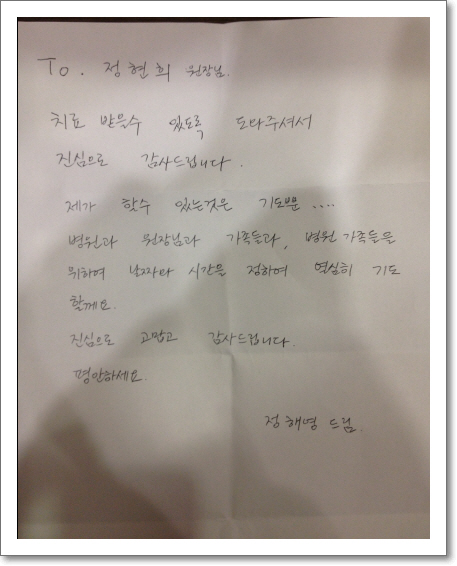 To. 정현희 원장님.
치료 받을수 있도록 도와주셔서
진심으로 감사드립니다.
제가 할수 있는것은 기도뿐 ....
병원과 원장님과 가족들과, 병원 가족들을
위하여 날짜와 시간을 정하여 열심히 기도
할께요.
진심으로 고맙고 감사드립니다.
평안하세요.
정해영 드림.